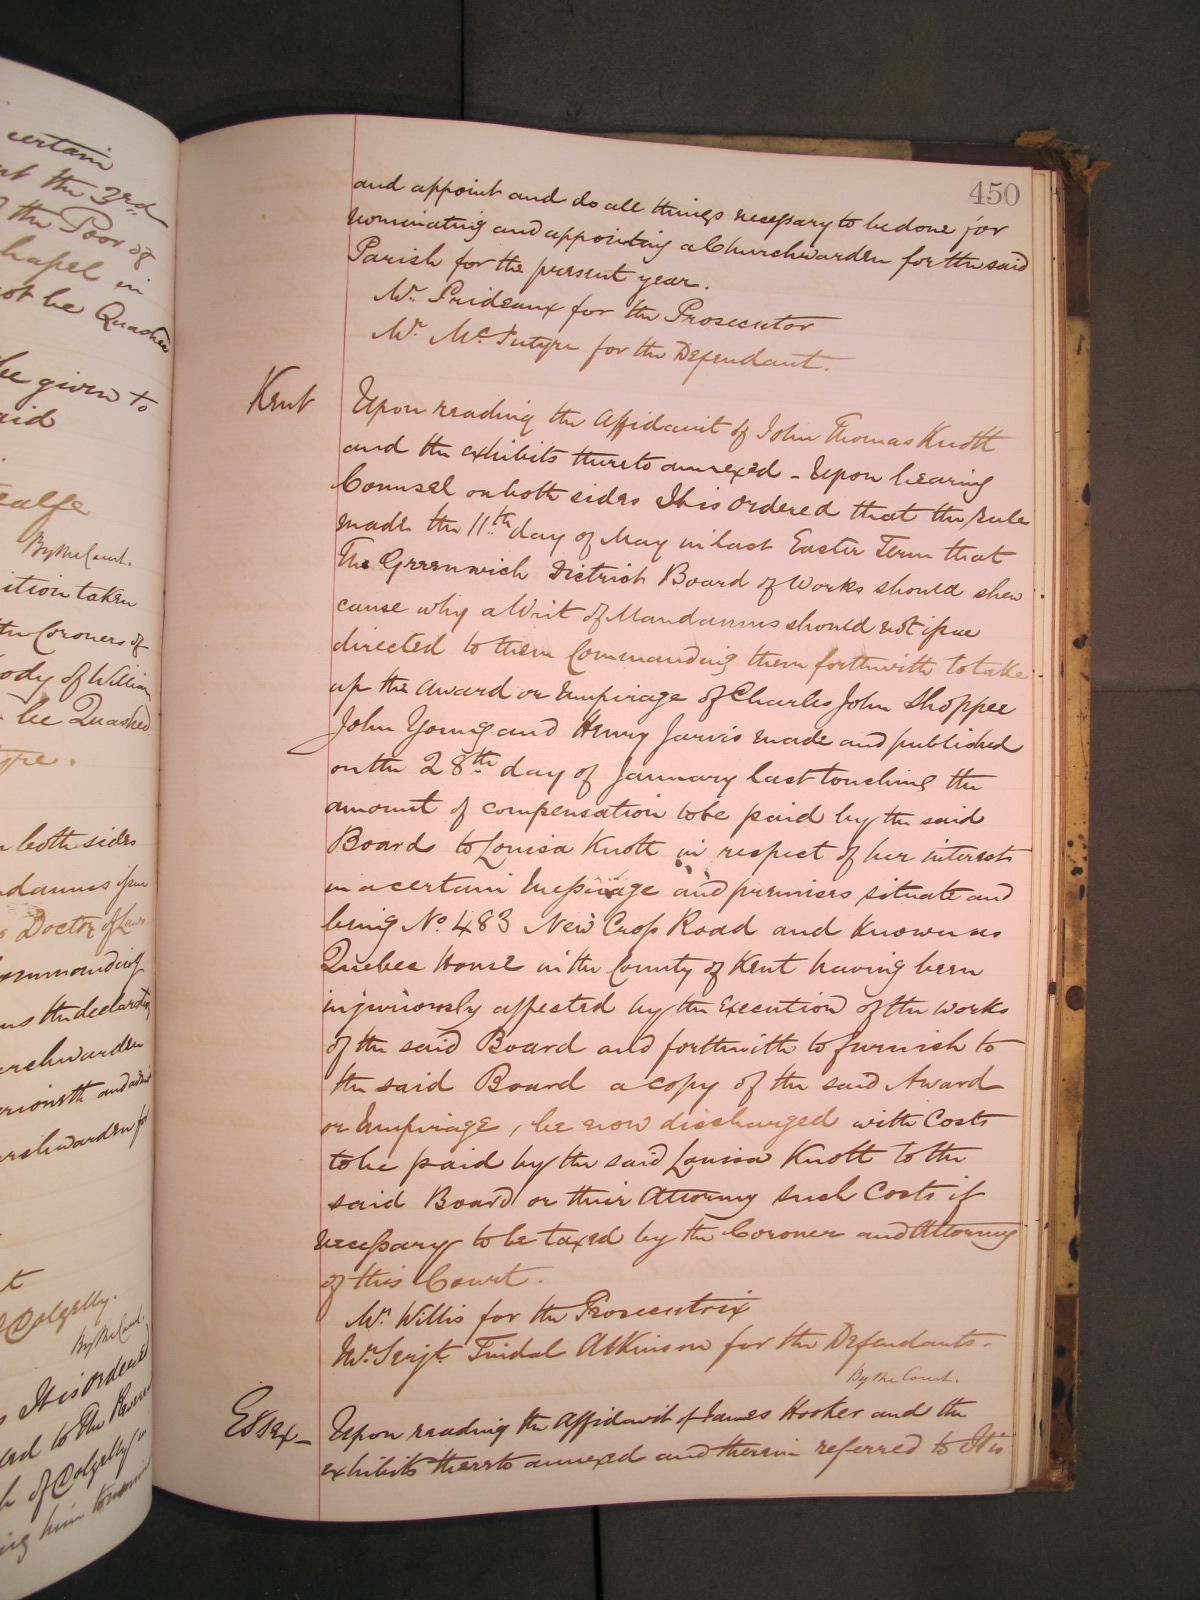 certain
the 3rd
the Poor of
Chapel in
not be Quashed
be given to
said
By the Court.
ition taken
the Coroners of
body of William
be Quashed
both sides
Mandamus issue
Doctor of Laws
Commanding
the declaration
Churchwarden
and admit
Churchwarden for
of Dolgelly.
By the Court.
It is Ordered
to the Revd
of Dolgelly in
him to
450
and appoint and do all things necessary to be done for
nominating and appointing a Churchwarden for the said
Parish for the present year.
Mr. Prideaux for the Prosecutor
Mr. McIntyre for the Defendant.
Kent
Upon reading the Affidavit of John Thomas Knott
and the exhibits thereto annexed - Upon hearing
Counsel on both sides It is ordered that the rule
made the 11th day of May in last Easter Term that
The Greenwich District Board of Works should shew
cause why a Writ of Mandamus should not issue
directed to them Commanding them forthwith to take
up the award or Umpirage of Charles John Shoppee
John Young and Henry Jarvis made and published
on the 28th day of January last touching the
amount of compensation to be paid by the said
Board to Louisa Knott in respect of her interest
in a certain Messuage and premises situate and
being No. 483 New Cross Road and known as
Quebec House in the County of Kent having been
injuriously affected by the Execution of the works
of the said Board and forthwith to furnish to
the said Board a copy of the said Award
or Umpirage, be now discharged with Costs
to be paid by the said Louisa Knott to the
said Board or their Attorney such Costs if
necessary to be taxed by the Coroner and Attorney
of this Court.
Mr. Willis for the Prosecutrix
Mr. Serjt. Tindal Atkinson for the Defendants.
By the Court.
Essex
Upon reading the Affidavit of James Hooker and the
exhibits thereto annexed and therein referred to It is